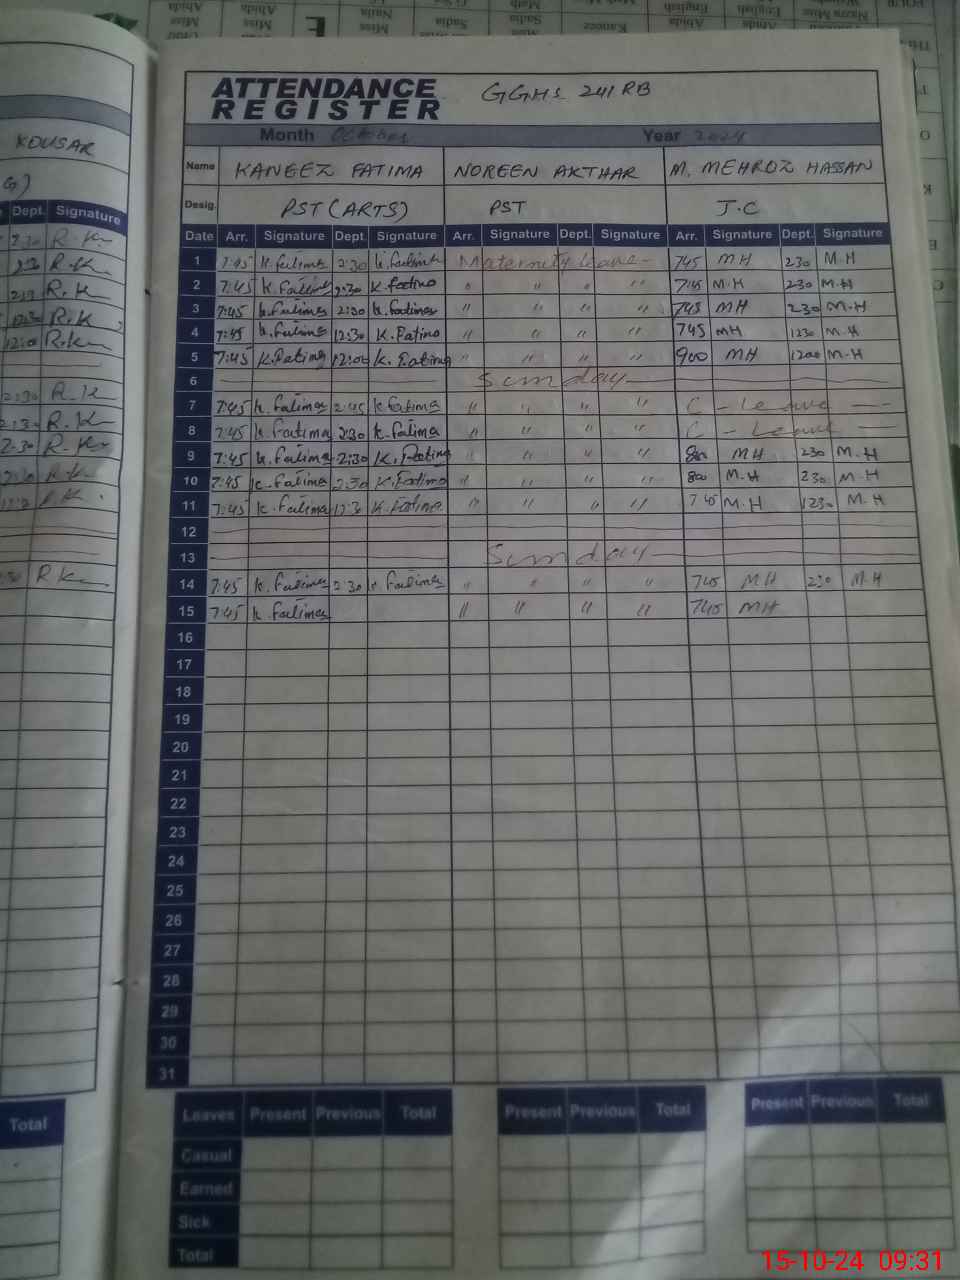 KOUSAR
ATTENDANCE
REGISTER
GGHS 241 RB
Month October Year 2024
Name KANEEZ FATIMA NOREEN AKTHAR M. MEHROZ HASSAN
Desig. PST (ARTS) PST J.C
Dept. Signature
Date Arr. Signature Dept. Signature Arr. Signature Dept. Signature Arr. Signature Dept. Signature
1 7:45 k.fatima 2:30 k.fatima Maternity leave- 745 MH 230 M.H
2 7:45 k.Fatima 2:30 K.fatima " " " " 745 M.H 230 M.H
3 7:45 k.fatima 2:30 k.fatima " " " " 745 MH 230 M.H
4 7:45 k.fatima 12:30 K.Fatima " " " " 745 MH 1230 M.H
5 7:45 K.Fatima 12:00 K.Fatima " " " " 900 MH 1200 M.H
6 Sunday
7 7:45 k.fatima 2:45 k.fatima " " " " C-Leave
8 7:45 k.Fatima 2:30 k.fatima " " " " C-Leave
9 7:45 k.fatima 2:30 K.Fatima " " " " 800 MH 230 M.H
10 7:45 k.fatima 2:30 K.Fatima " " " " 800 M.H 230 M.H
11 7:45 k.fatima 12:30 K.Fatima " " " " 745 M.H 1230 M.H
12
13 Sunday
14 7:45 k.fatima 2:30 k.fatima " " " " 745 MH 230 M.H
15 7:45 k.fatima " " " " 745 MH
16
17
18
19
20
21
22
23
24
25
26
27
28
29
30
31
Total
Leaves Present Previous Total Present Previous Total Present Previous Total
Casual
Earned
Sick
Total
15-10-24 09:31